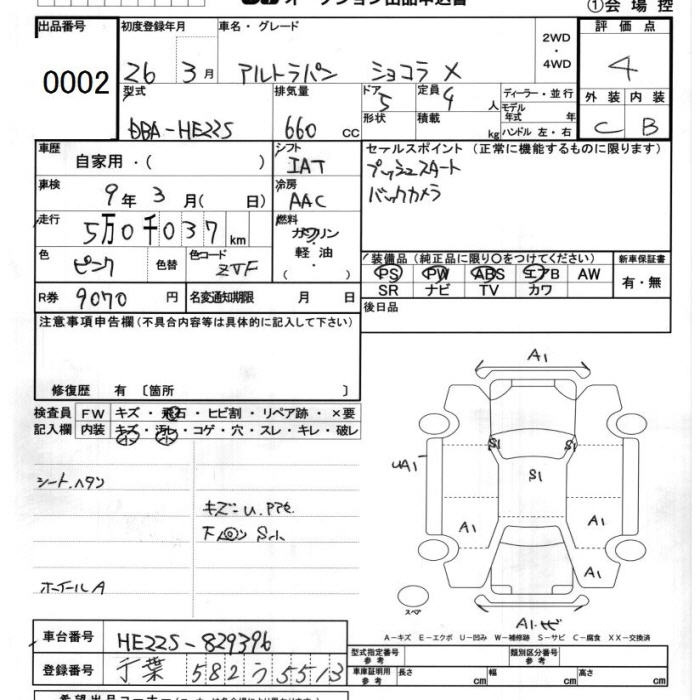 オークション出品申込書
①会場控
出品番号 初度登録年月 車名・グレード 2WD・4WD 評価点
0002 26 3月 アルトラパン ショコラ X 4
型式 排気量 ドア 定員 ディーラー・並行 外装 内装
DBA-HE22S 660 cc 5 4人 モデル年式 年 C B
形状 積載 kg ハンドル 左・右
車歴 シフト セールスポイント (正常に機能するものに限ります)
自家用・( ) IAT プッシュスタート
車検 冷房 バックカメラ
9年 3月( 日) AAC
走行 燃料
5万0千037km ガソリン・軽油・( )
色 色替 色コード 装備品 (純正品に限り○をつけてください) 新車保証書
ピンク ZVF PS PW ABS エアB AW 有・無
SR ナビ TV カワ
R券 9070円 名変通知期限 月 日 後日品
注意事項申告欄(不具合内容等は具体的に記入して下さい)
修復歴 有 〔箇所 〕
検査員 FW キズ・飛石・ヒビ割・リペア跡・×要
記入欄 内装 キズ・汚レ・コゲ・穴・スレ・キレ・破レ
小 小
シートヘタリ
キズ:U.
S小
ホイールA
A1
S1 S1
UA1 S1
A1 A1
A1
スペア
A1・サビ
A−キズ E−エクボ U−凹み W−補修跡 S−サビ C−腐食 XX−交換済
車台番号 HE22S-829396
登録番号 千葉 582 う 5513
型式指定番号 参考 類別区分番号 参考
車庫証明用 参考 長さ cm 幅 cm 高さ cm